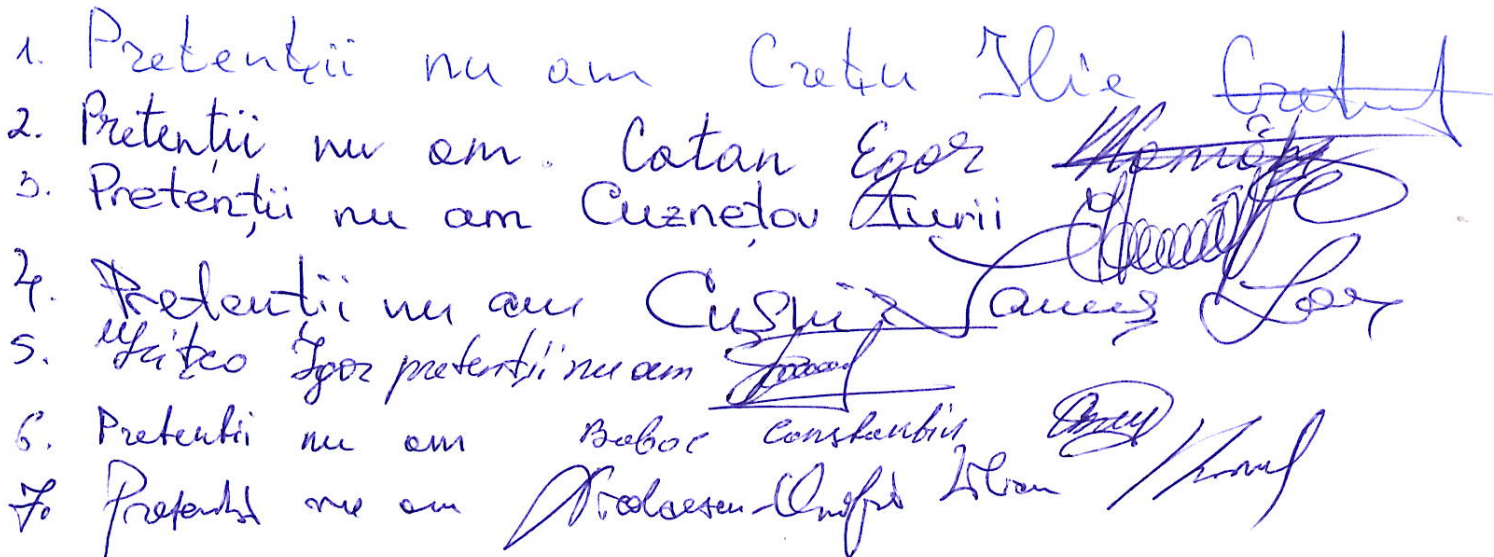 1. Pretenții nu am Crețu Ilie
2. Pretenții nu am. Catan Egor
3. Pretenții nu am Cuznețov Iurii
4. Pretentii nu am Cușnir
5. Igor pretenții nu am
6. Pretentii nu am Boboc Constantin
7. Pretenții nu am Nicolaescu-Onofrei Lilian